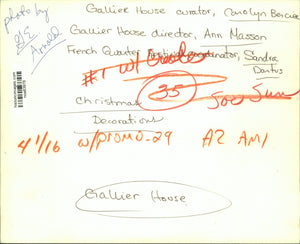 photo by
G.E.
Arnold
Gallier House curator, Carolyn Bercier
Gallier House director, Ann Masson
French Quarter Festival coordinator, Sandra
Dartus
#1 w/
35
Christmas
Decorations
4 1/16 w/promo-29 A2 AM1
Gallier House